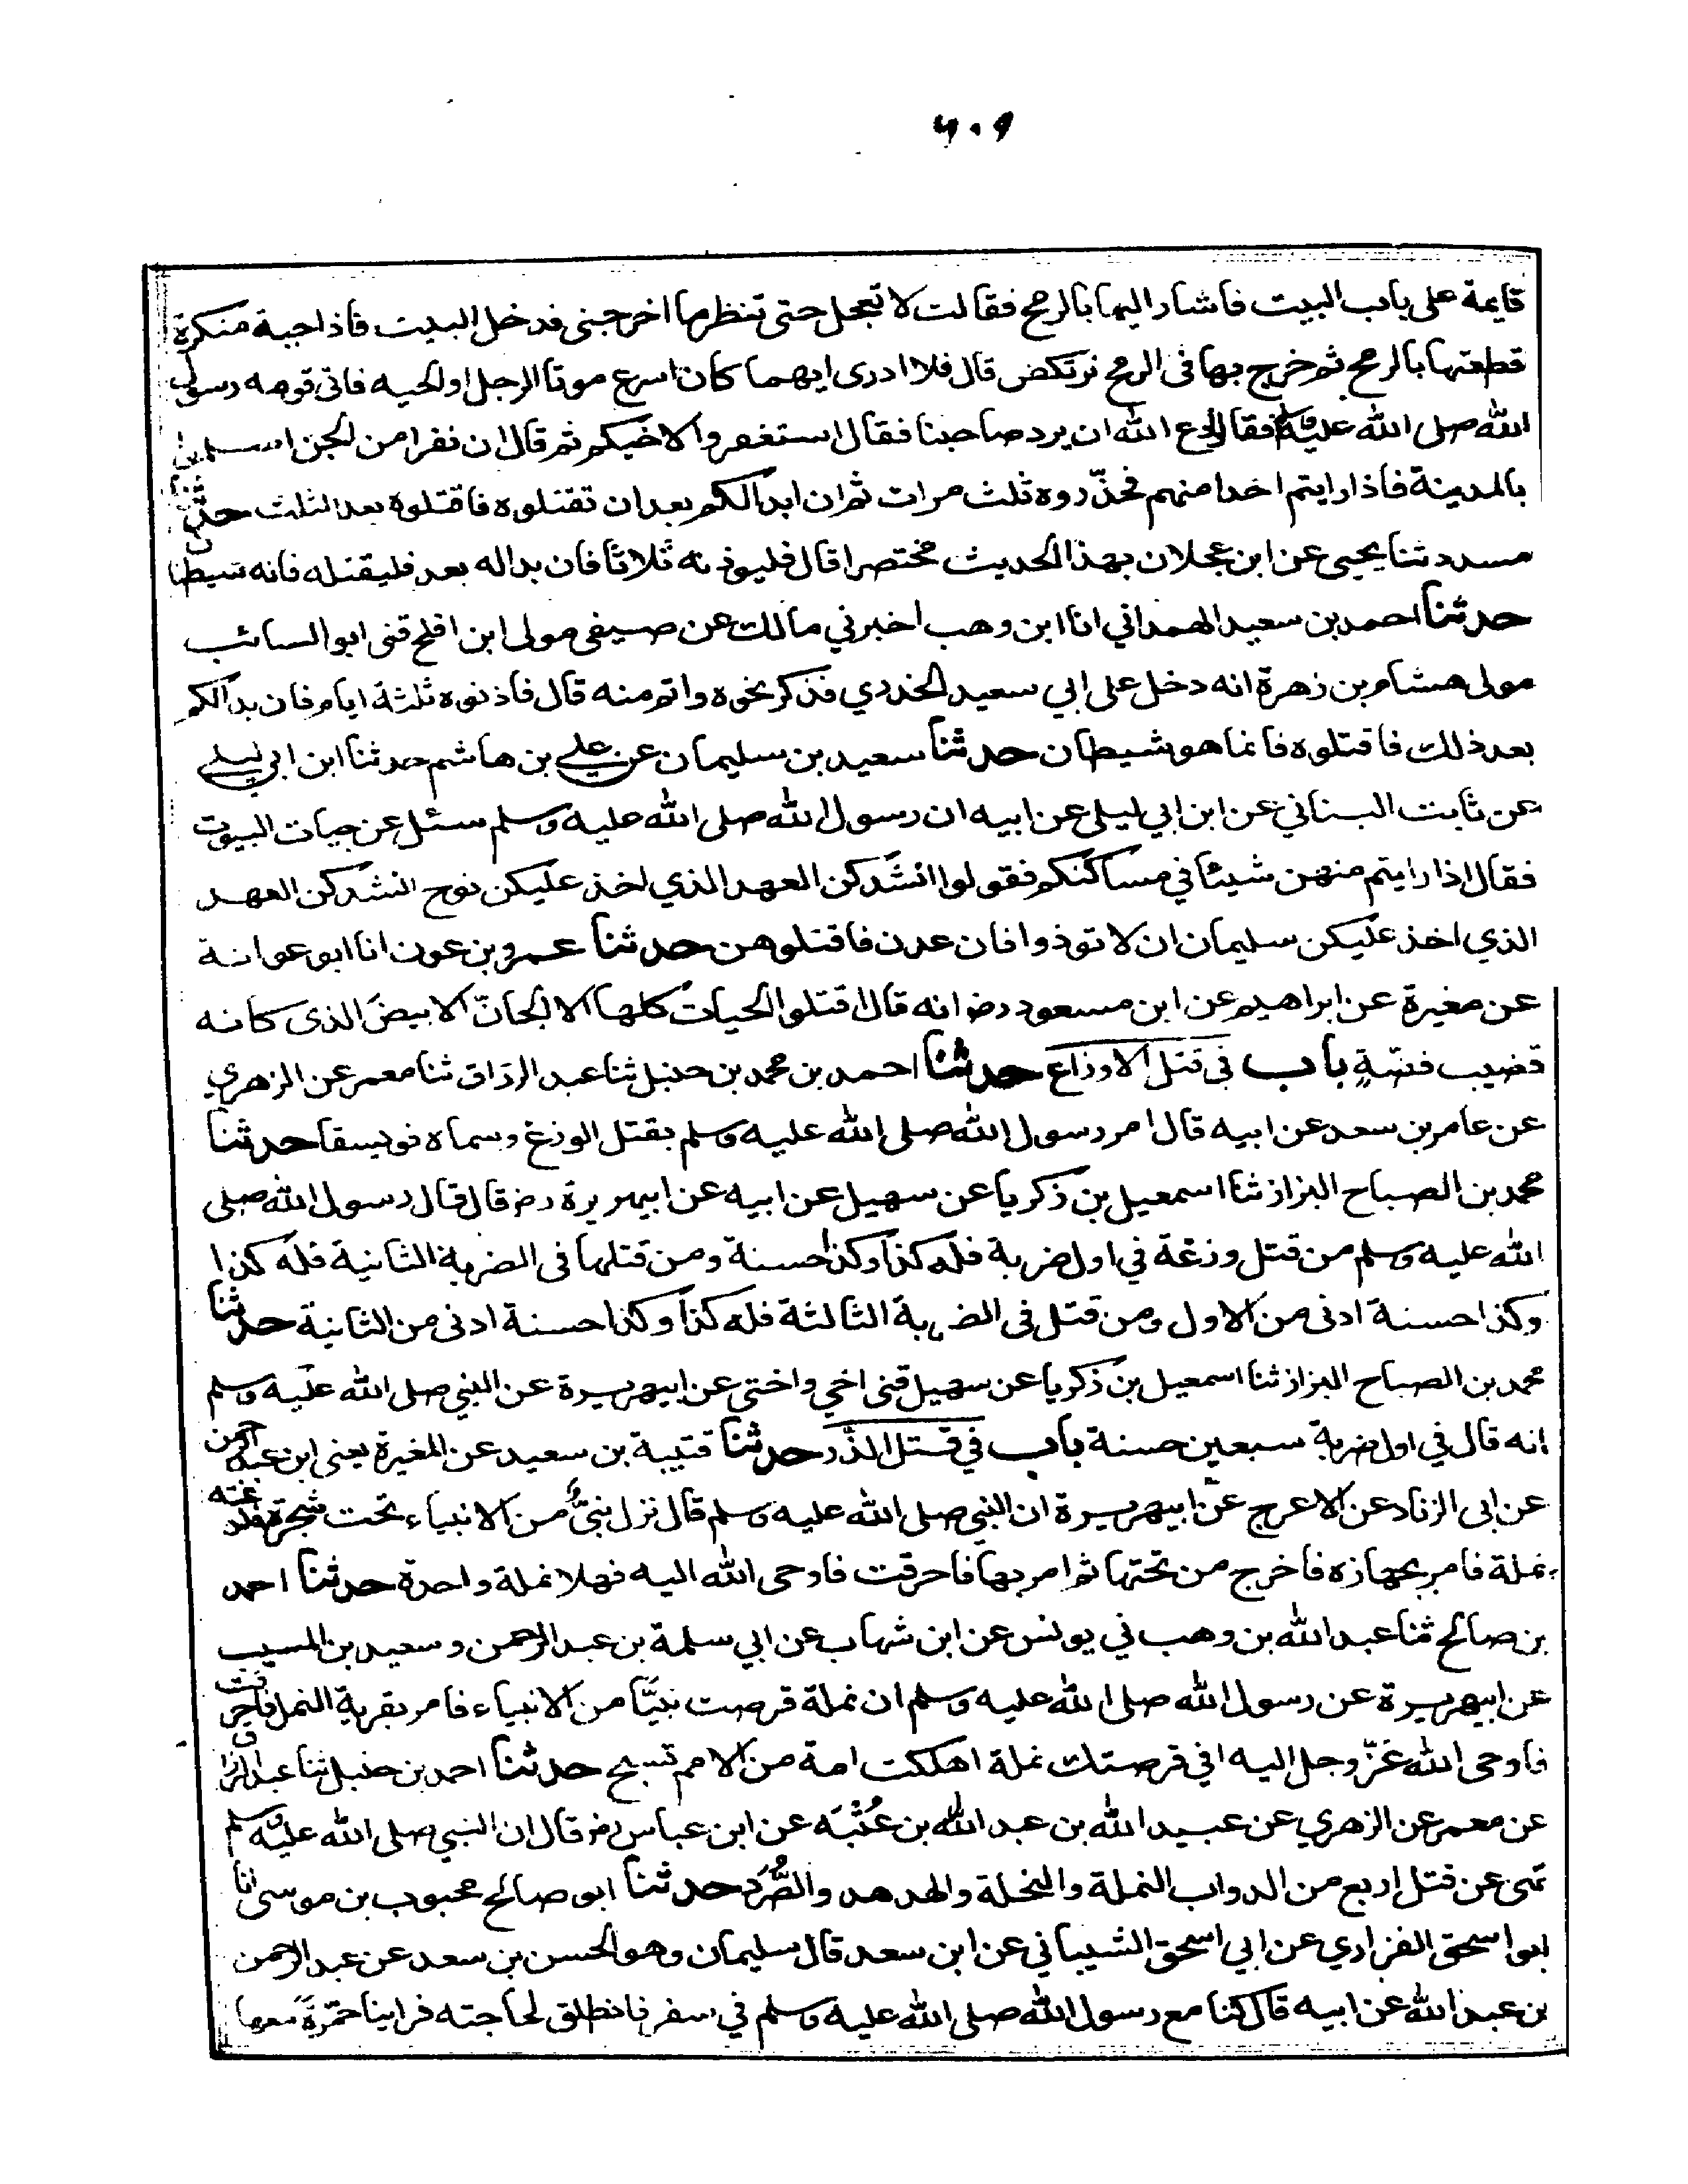 ٦٠٩
قايمة على باب البيت فاشار اليها بالرمح فقالت لا تعجل حتى تنظر ما اخرجنى فدخل البيت فاذا حية منكرة
فطعنها بالرمح ثم خرج بها فى الرمح ترتكض قال فلا ادرى ايهما كان اسرع موتا الرجل او الحيه فاتى قومه رسول
الله صلى الله عليه وسلم فقالوا ادع الله ان يرد صاحبنا فقال استغفروا لاخيكم ثم قال ان نفرا من الجن اسلموا
بالمدينة فاذا رايتم احدا منهم فحذّروه ثلث مرات ثم ان بدا لكم بعد ان تقتلوه فاقتلوه بعد الثلث حدثنا
مسدد ثنا يحيى عن ابن عجلان بهذا الحديث مختصرا قال فليوذنه ثلاثا فان بدا له بعد فليقتله فانه شيطان
حدثنا احمد بن سعيد الهمداني انا ابن وهب اخبرني مالك عن صيفى مولى ابن افلح قنى ابو السائب
مولى هشام بن زهرة انه دخل على ابي سعيد الخدري فذكر نحوه واتم منه قال فاذنوه ثلثة ايام فان بدا لكم
بعد ذلك فاقتلوه فانما هو شيطان حدثنا سعيد بن سليمان عن علي بن هاشم حدثنا ابن ابي ليلى
عن ثابت البناني عن ابن ابي ليلى عن ابيه ان رسول الله صلى الله عليه وسلم سئل عن حيات البيوت
فقال اذا رايتم منهن شيئا في مساكنكم فقولوا انشدكن العهد الذي اخذ عليكن نوح انشدكن العهد
الذي اخذ عليكن سليمان ان لا توذوا فان عدن فاقتلوهن حدثنا عمرو بن عون انا ابو عوانة
عن مغيرة عن ابراهيم عن ابن مسعود رض انه قال اقتلوا الحيات كلها الا الجانّ الابيض الذى كانه
قضيب فضّةٍ باب في قتل الاوزاغ حدثنا احمد بن محمد بن حنبل ثنا عبد الرزاق ثنا معمر عن الزهري
عن عامر بن سعد عن ابيه قال امر رسول الله صلى الله عليه وسلم بقتل الوزغ وسماه فويسقا حدثنا
محمد بن الصباح البزاز ثنا اسمعيل بن زكريا عن سهيل عن ابيه عن ابيهريرة رض قال قال رسول الله صلى
الله عليه وسلم من قتل وزغة في اول ضربة فله كذا وكذا حسنة ومن قتلها فى الضربة الثانية فله كذا
وكذا حسنة ادنى من الاول ومن قتل فى الضربة الثالثة فله كذا وكذا حسنة ادنى من الثانية حدثنا
محمد بن الصباح البزاز ثنا اسمعيل بن زكريا عن سهيل قنى اخي واختى عن ابيهريرة عن النبي صلى الله عليه وسلم
انه قال في اول ضربة سبعين حسنة باب في قتل الذّر حدثنا قتيبة بن سعيد عن المغيرة يعنى ابن عبد الرحمن
عن ابى الزناد عن الاعرج عن ابيهريرة ان النبي صلى الله عليه وسلم قال نزل نبىٌّ من الانبياء تحت شجرة فلدغته
نملة فامر بجهازه فاخرج من تحتها ثم امر بها فاحرقت فاوحى الله اليه فهلا نملة واحدة حدثنا احمد
بن صالح ثنا عبد الله بن وهب ني يونس عن ابن شهاب عن ابي سلمة بن عبد الرحمن وسعيد بن المسيب
عن ابيهريرة عن رسول الله صلى الله عليه وسلم ان نملة قرصت نبيّا من الانبياء فامر بقرية النمل فاحرقت
فاوحى الله عزّ وجل اليه افي قرصتك نملة اهلكت امة من الامم تسبح حدثنا احمد بن حنبل ثنا عبد الرزاق
عن معمر عن الزهري عن عبيد الله بن عبد الله بن عُتْبَه عن ابن عباس رض قال ان النبي صلى الله عليه وسلم
نهى عن قتل اربع من الدواب النملة والنحلة والهدهد والصُّرَد حدثنا ابو صالح محبوب بن موسى انا
ابو اسحق الفزاري عن ابي اسحق الشيباني عن ابن سعد قال سليمان وهو الحسن بن سعد عن عبد الرحمن
بن عبد الله عن ابيه قال كنا مع رسول الله صلى الله عليه وسلم في سفر فانطلق لحاجته فراينا حمّرةً معها